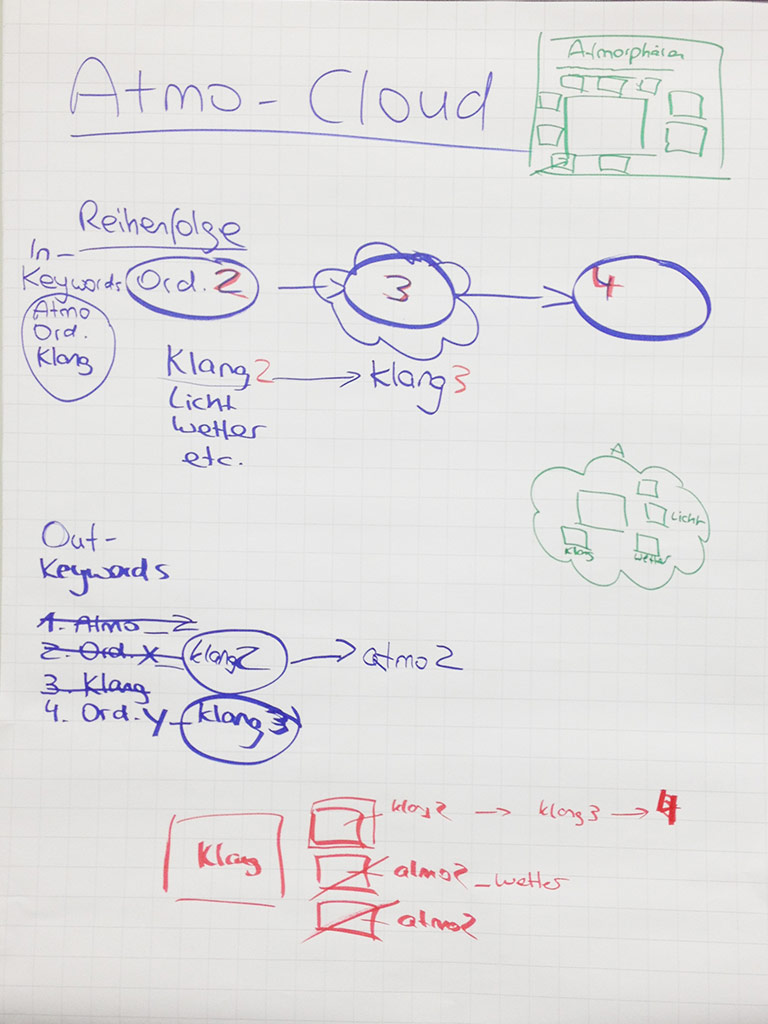 Atmo-Cloud
Atmosphären
Reihenfolge
In-
Keywords
Atmo
Ord.
Klang
Ord. 2
3
4
Klang2
Klang3
Licht
Wetter
etc.
A
Licht
Klang
Wetter
Out-
Keywords
1. Atmo_2
2. Ord.X_Klang2
atmo2
3. Klang
4. Ord.Y_Klang3
Klang
klang2
klang3
4
atmo2_wetter
atmo2